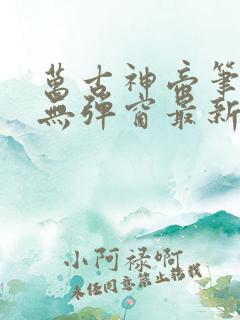 萬古神帝筆
無彈窗最新
小阿祿啊
未经同意禁止转载